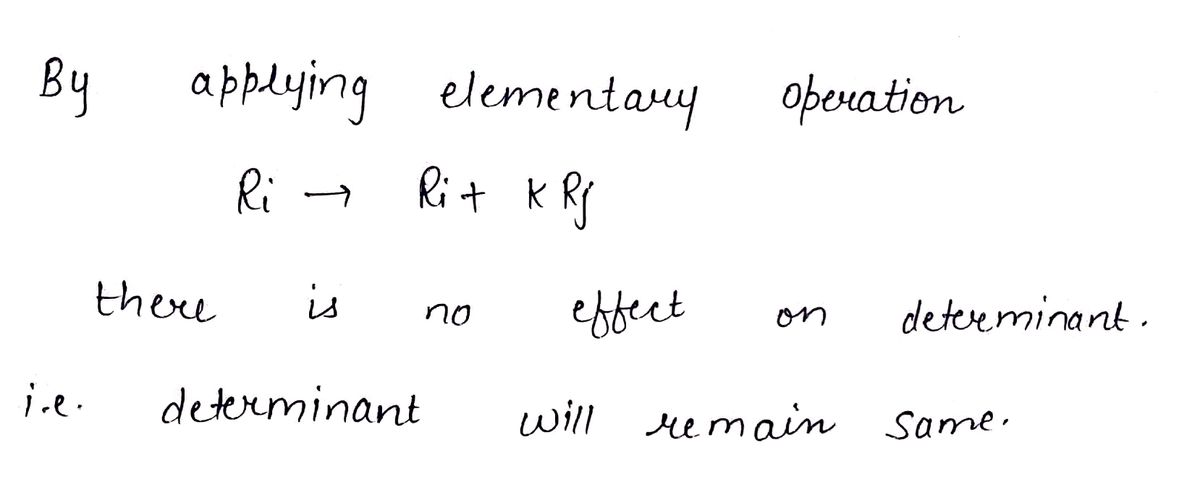 By applying elementary operation
Ri → Ri + K Rj
there is no effect on determinant.
i.e. determinant will remain same.